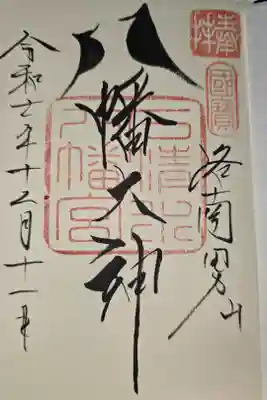 奉拝
國寶
洛南男山
八幡大神
石清水
八幡宮
令和七年十二月十一日